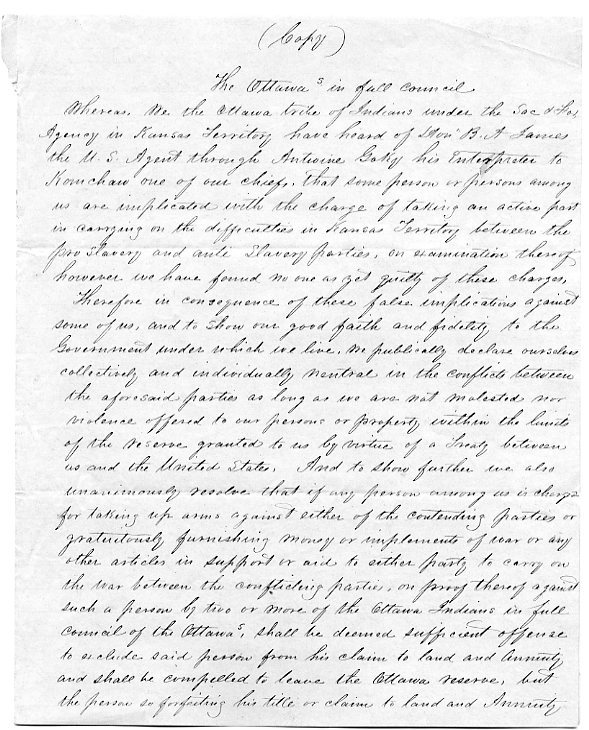 (Copy)
The Ottawas in full council
Whereas, We the Ottawa tribe of Indians under the Sac & Fox
Agency in Kansas Territory have heard of Hon. B. A. James
the U. S. Agent through Antwine Goky his Enterpreter to
Komchaw one of our chiefs, that some person or persons among
us are implicated with the charge of taking an active part
in carrying on the difficulties in Kansas Territory between the
pro Slavery and anti Slavery parties, on examination thereof
however we have found no one as yet guilty of these charges,
Therefore in consequence of these false implications against
some of us, and to show our good faith and fidelity to the
Government under which we live, We publically declare ourselves
collectively and individually neutral in the conflicts between
the aforesaid parties as long as we are not molested nor
violence offered to our persons or property within the limits
of the reserve granted to us by virtue of a Treaty between
us and the United States. And to show further we also
unanimously resolve that if any person among us is charge
for taking up arms against either of the contending parties or
gratuitously furnishing money or implements of war or any
other articles in support or aid to either party to carry on
the war between the conflicting parties, on proof thereof against
such a person by two or more of the Ottawa Indians in full
council of the Ottawas, shall be deemed sufficient offense
to exclude said person from his claim to land and Annuity
and shall be compelled to leave the Ottawa reserve, but
the person so forfeiting his title or claim to land and Annuity